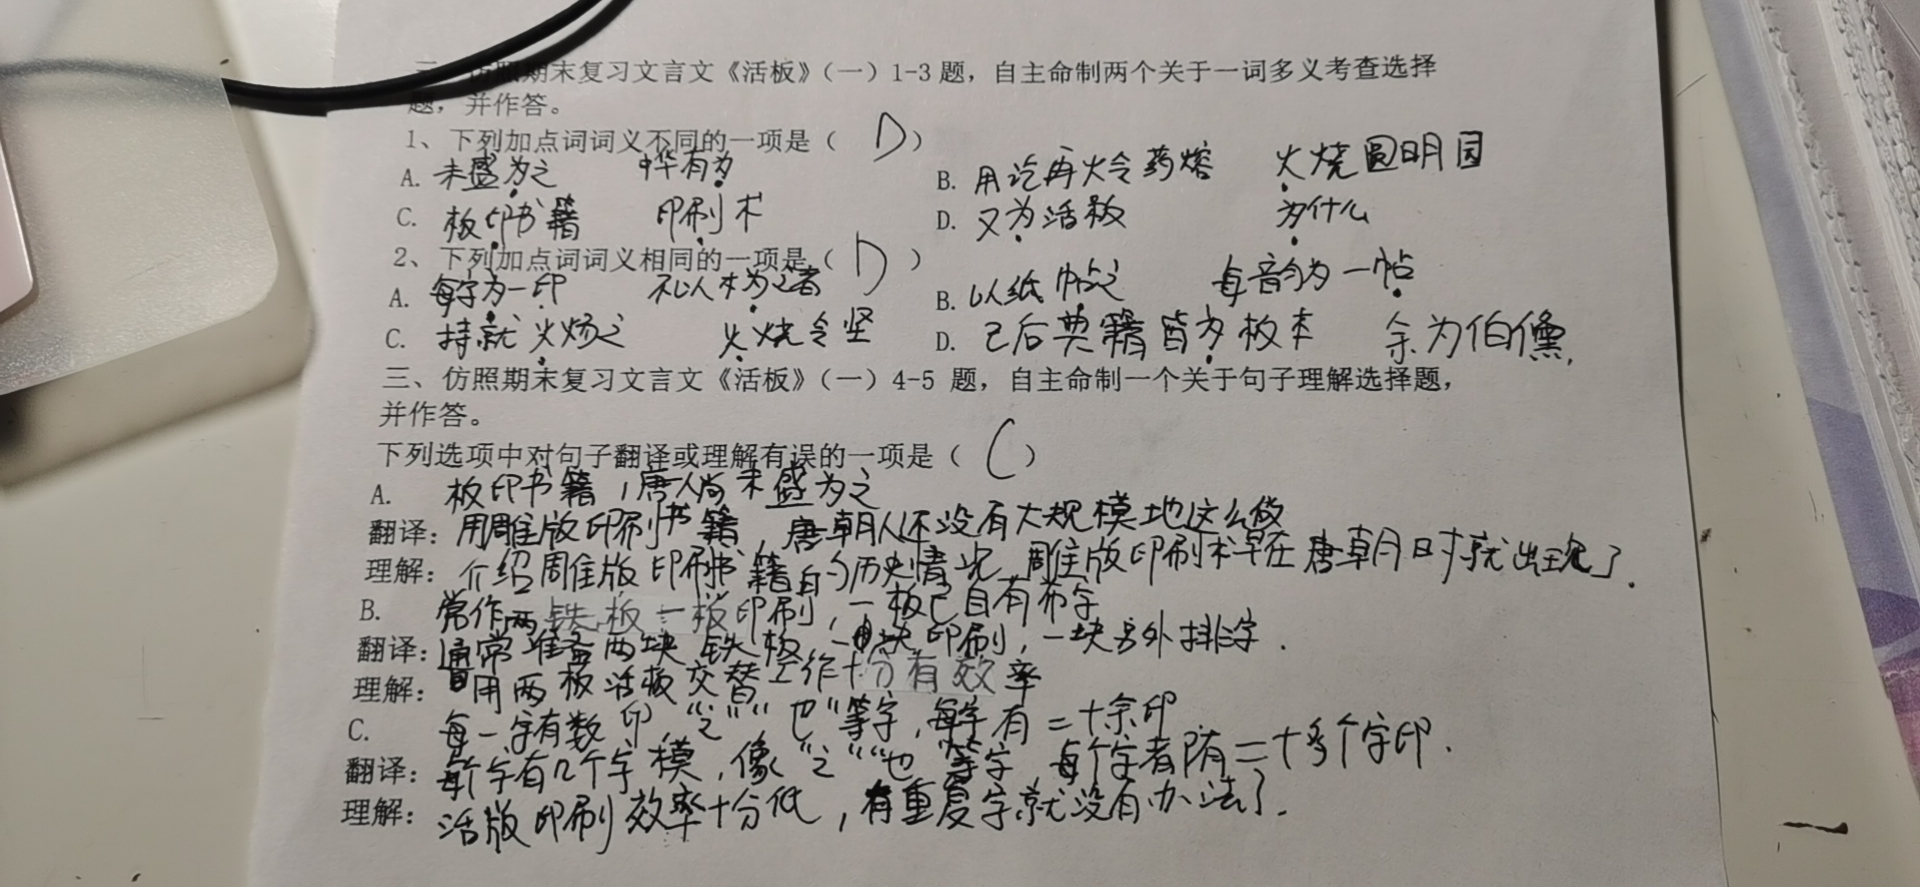 仿照期末复习文言文《活板》（一）1-3题，自主命制两个关于一词多义考查选择
题，并作答。
1、下列加点词词义不同的一项是（ D ）
A. 未盛为之 中华有为 B. 用讫再火令药熔 火烧圆明园
C. 板印书籍 印刷术 D. 又为活板 为什么
2、下列加点词词义相同的一项是（ D ）
A. 每字为一印 不以木为之者 B. 以纸帖之 每音韵为一帖
C. 持就火炀之 火烧令坚 D. 已后典籍皆为板本 余为伯儒
三、仿照期末复习文言文《活板》（一）4-5 题，自主命制一个关于句子理解选择题，
并作答。
下列选项中对句子翻译或理解有误的一项是（ C ）
A. 板印书籍，唐人尚未盛为之
翻译：用雕版印刷书籍，唐朝人还没有大规模地这么做
理解：介绍雕版印刷书籍的历史情况 雕版印刷术早在唐朝时就出现了.
B. 常作两铁板一板印刷，一板已自有布字
翻译：通常准备两块铁板 一块印刷，一块另外排字.
理解：用两板活板交替工作十分有效率
C. 每一字有数印，“之”“也”等字，每字有二十余印
翻译：每个字有几个字模，像“之”“也”等字 每个字都有二十多个字印.
理解：活版印刷效率十分低，有重复字就没有办法了.